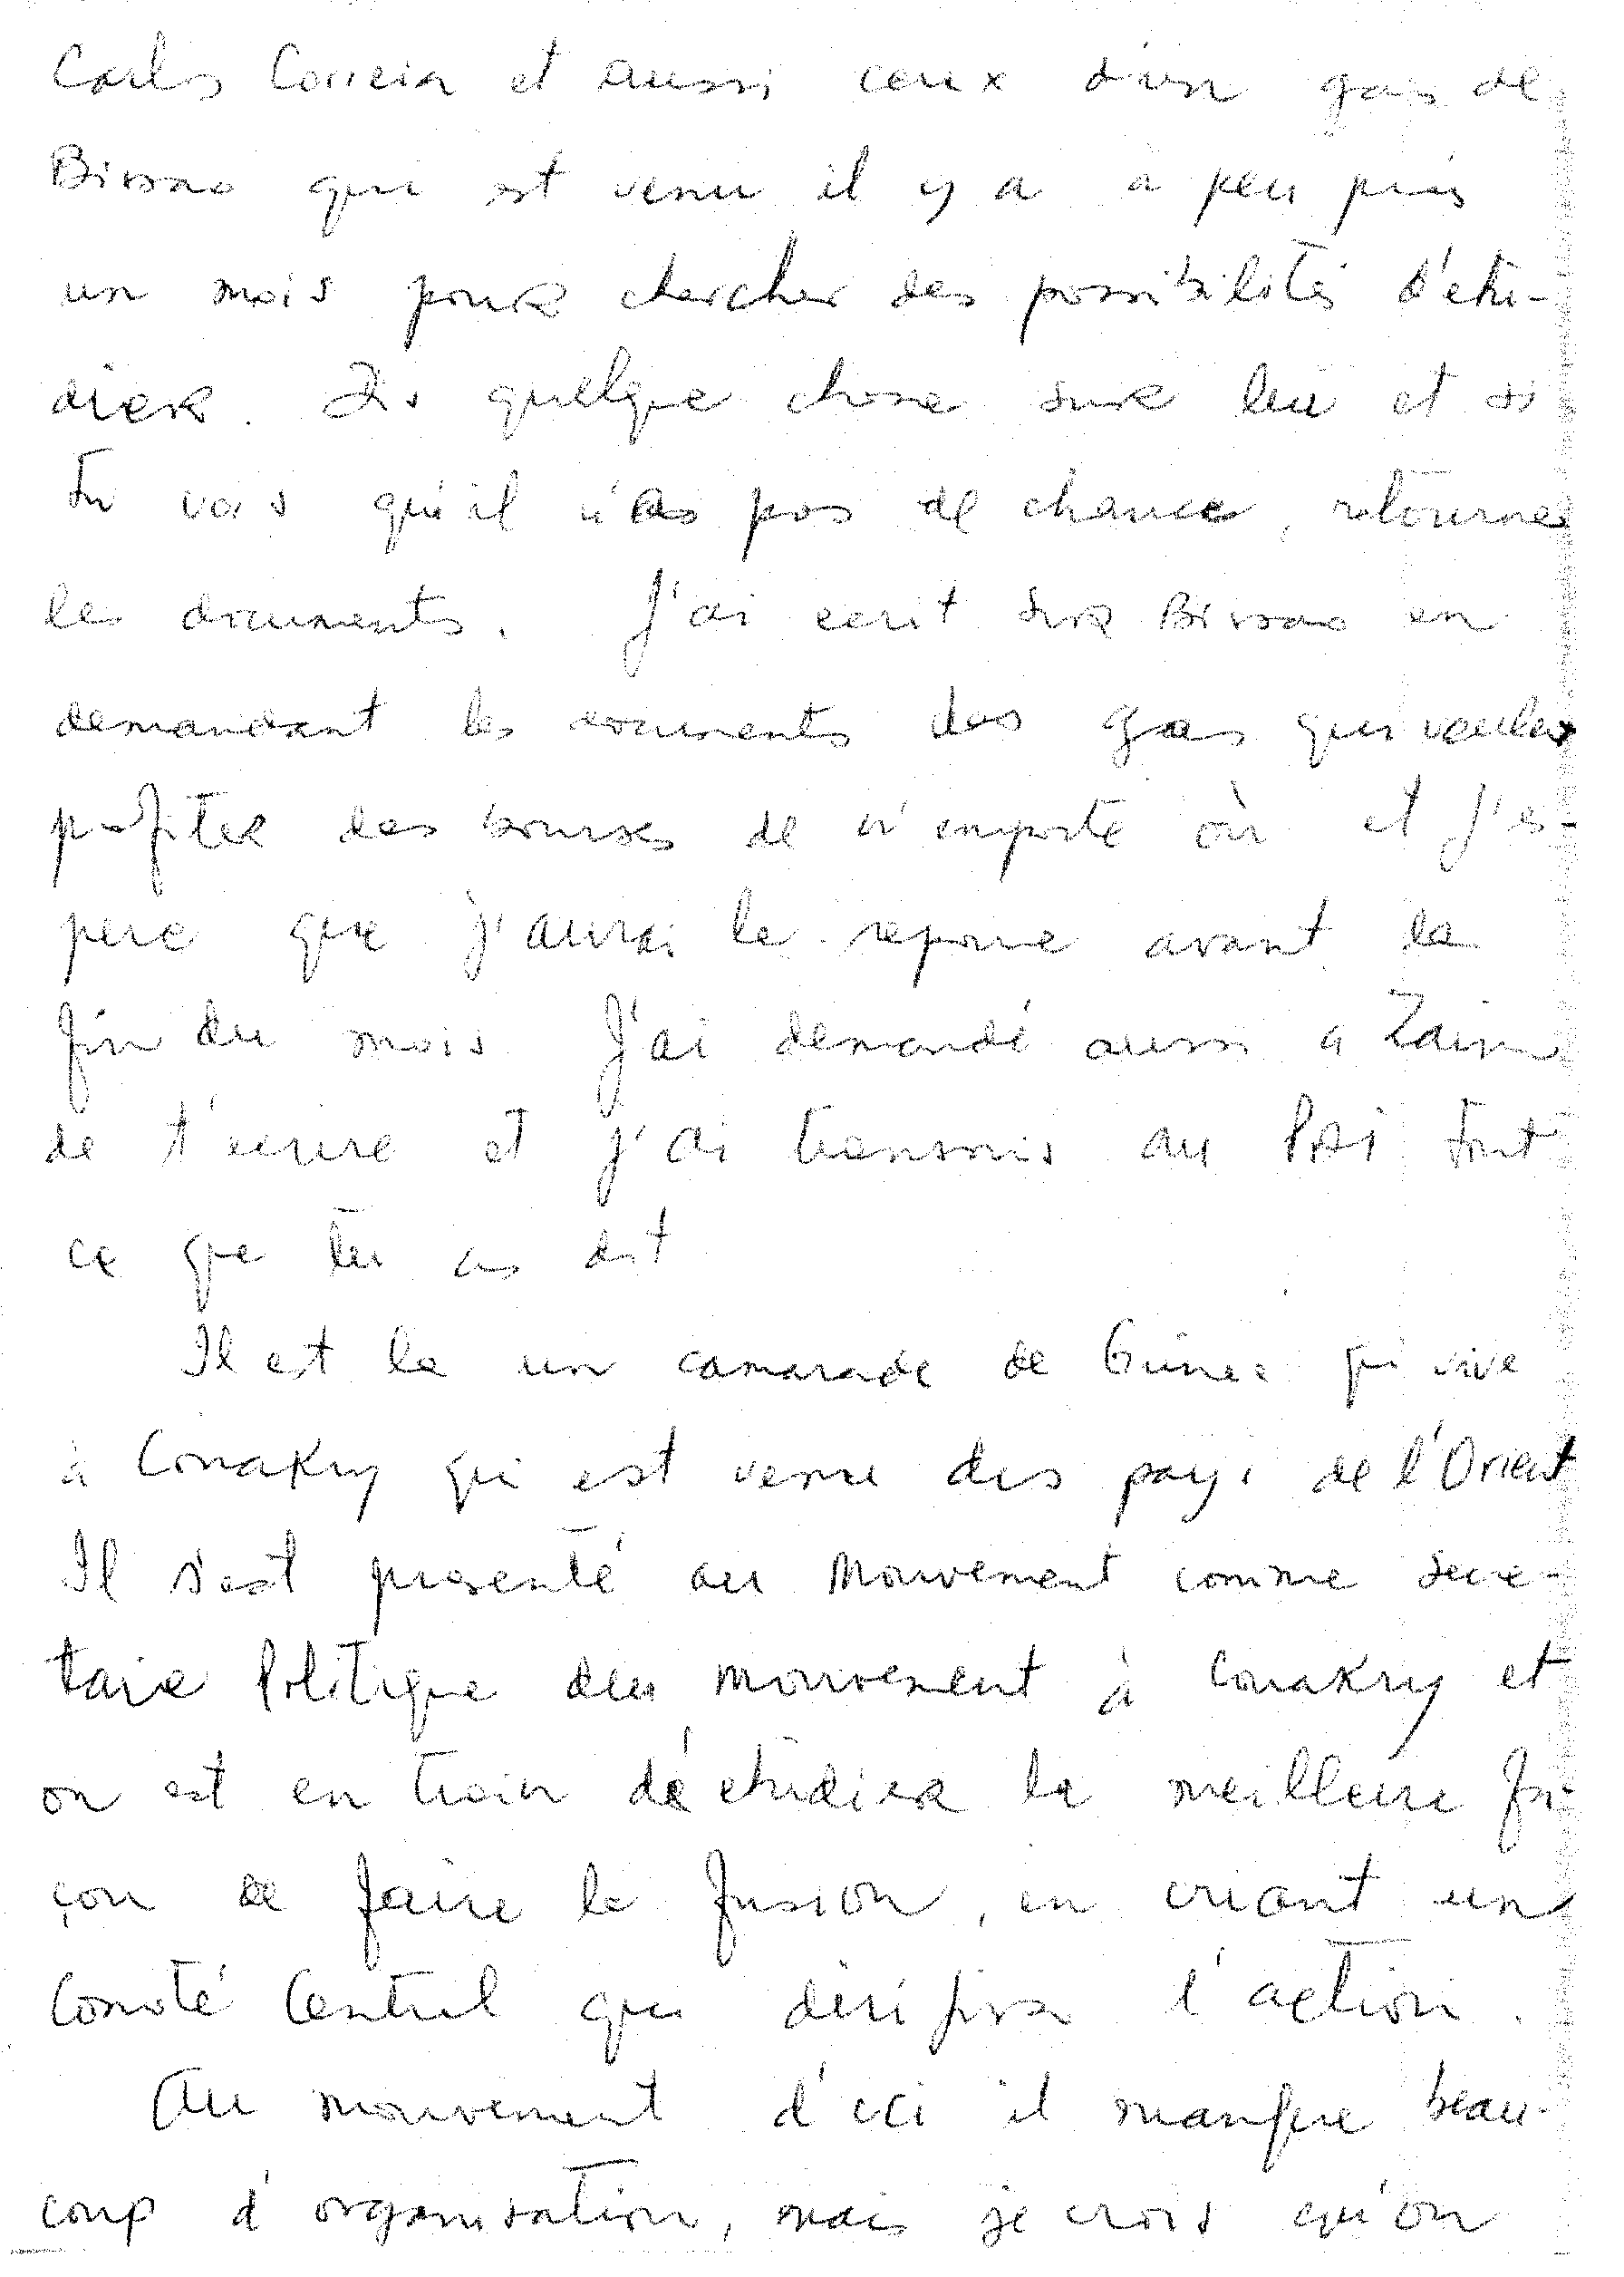 Carlos Correia et aussi ceux d'un gars de
Bissao qui est venu il y a à peu près
un mois pour chercher des possibilités d'etu-
dier. Dis quelque chose sur lui et si
tu vois qu'il n'as pas de chance, retourne
les documents. J'ai ecrit sur Bissao en
demandant les documents des gas qui veulent
profiter des bourses de n'emporte où et j'es-
pere que j'aurai la reponse avant la
fin du mois J'ai demandé aussi a
de t'ecrire et j'ai transmis au PAI tout
ce que tu as dit
Il est la un camarade de Guinée qui vive
à Conakry qui est venu des pays de l'Orient
Il s'est presenté au Mouvement comme secre-
taire Politique du Mouvement à Conakry et
on est en train d'etudier la meilleure fa-
çon de faire la fusion, en criant un
Comité Central qui dirigira l'action.
Au mouvement d'ici il manque beau-
coup d'organisation, mais je crois qu'on